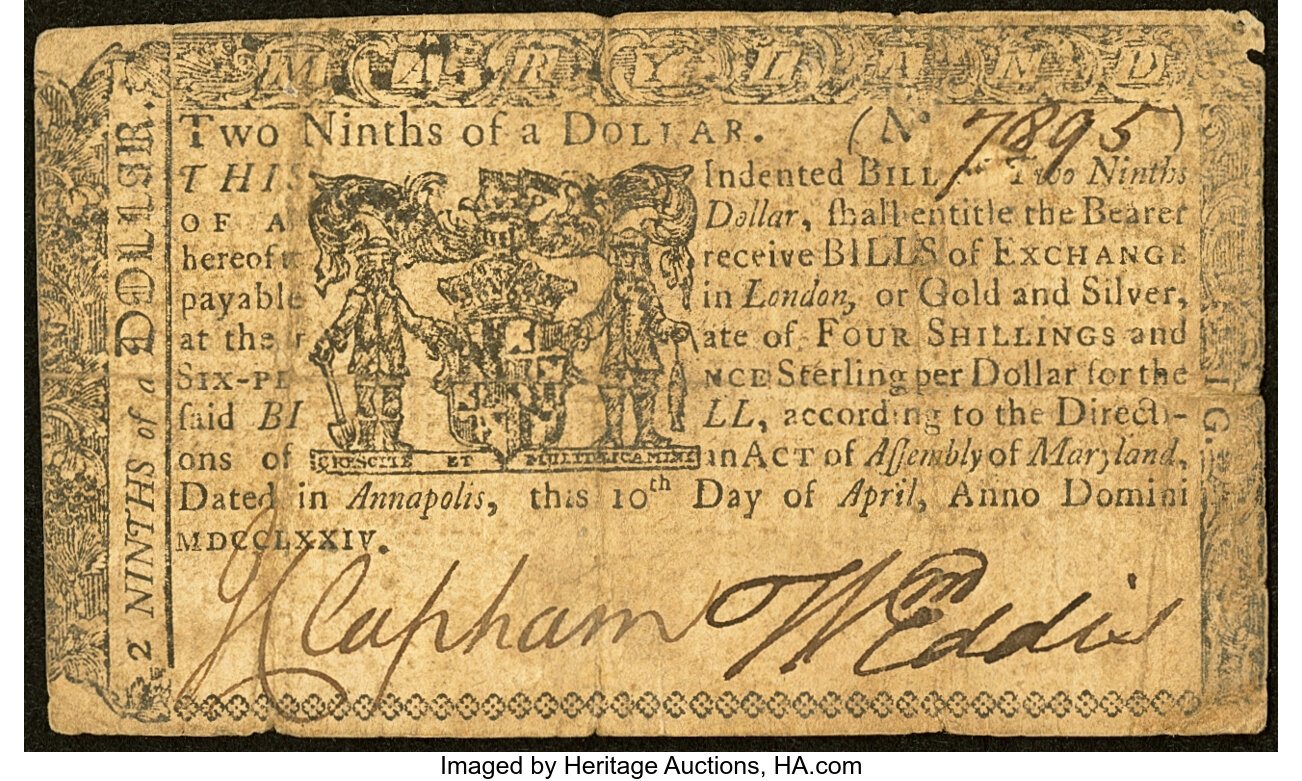 MARYLAND
Two Ninths of a DOLLAR. (No 7895)
THIS Indented BILL Two Ninths
OF A Dollar, shall entitle the Bearer
hereof to receive BILLS of EXCHANGE
payable in London, or Gold and Silver,
at the rate of FOUR SHILLINGS and
SIX-PENCE Sterling per Dollar for the
said BILL, according to the Directi-
ons of an ACT of Assembly of Maryland.
CRESCITE ET MULTIPLICAMINI
Dated in Annapolis, this 10th Day of April, Anno Domini
MDCCLXXIV.
J Clapham Wm Eddis
2 NINTHS of a DOLLAR.
I G.
Imaged by Heritage Auctions, HA.com